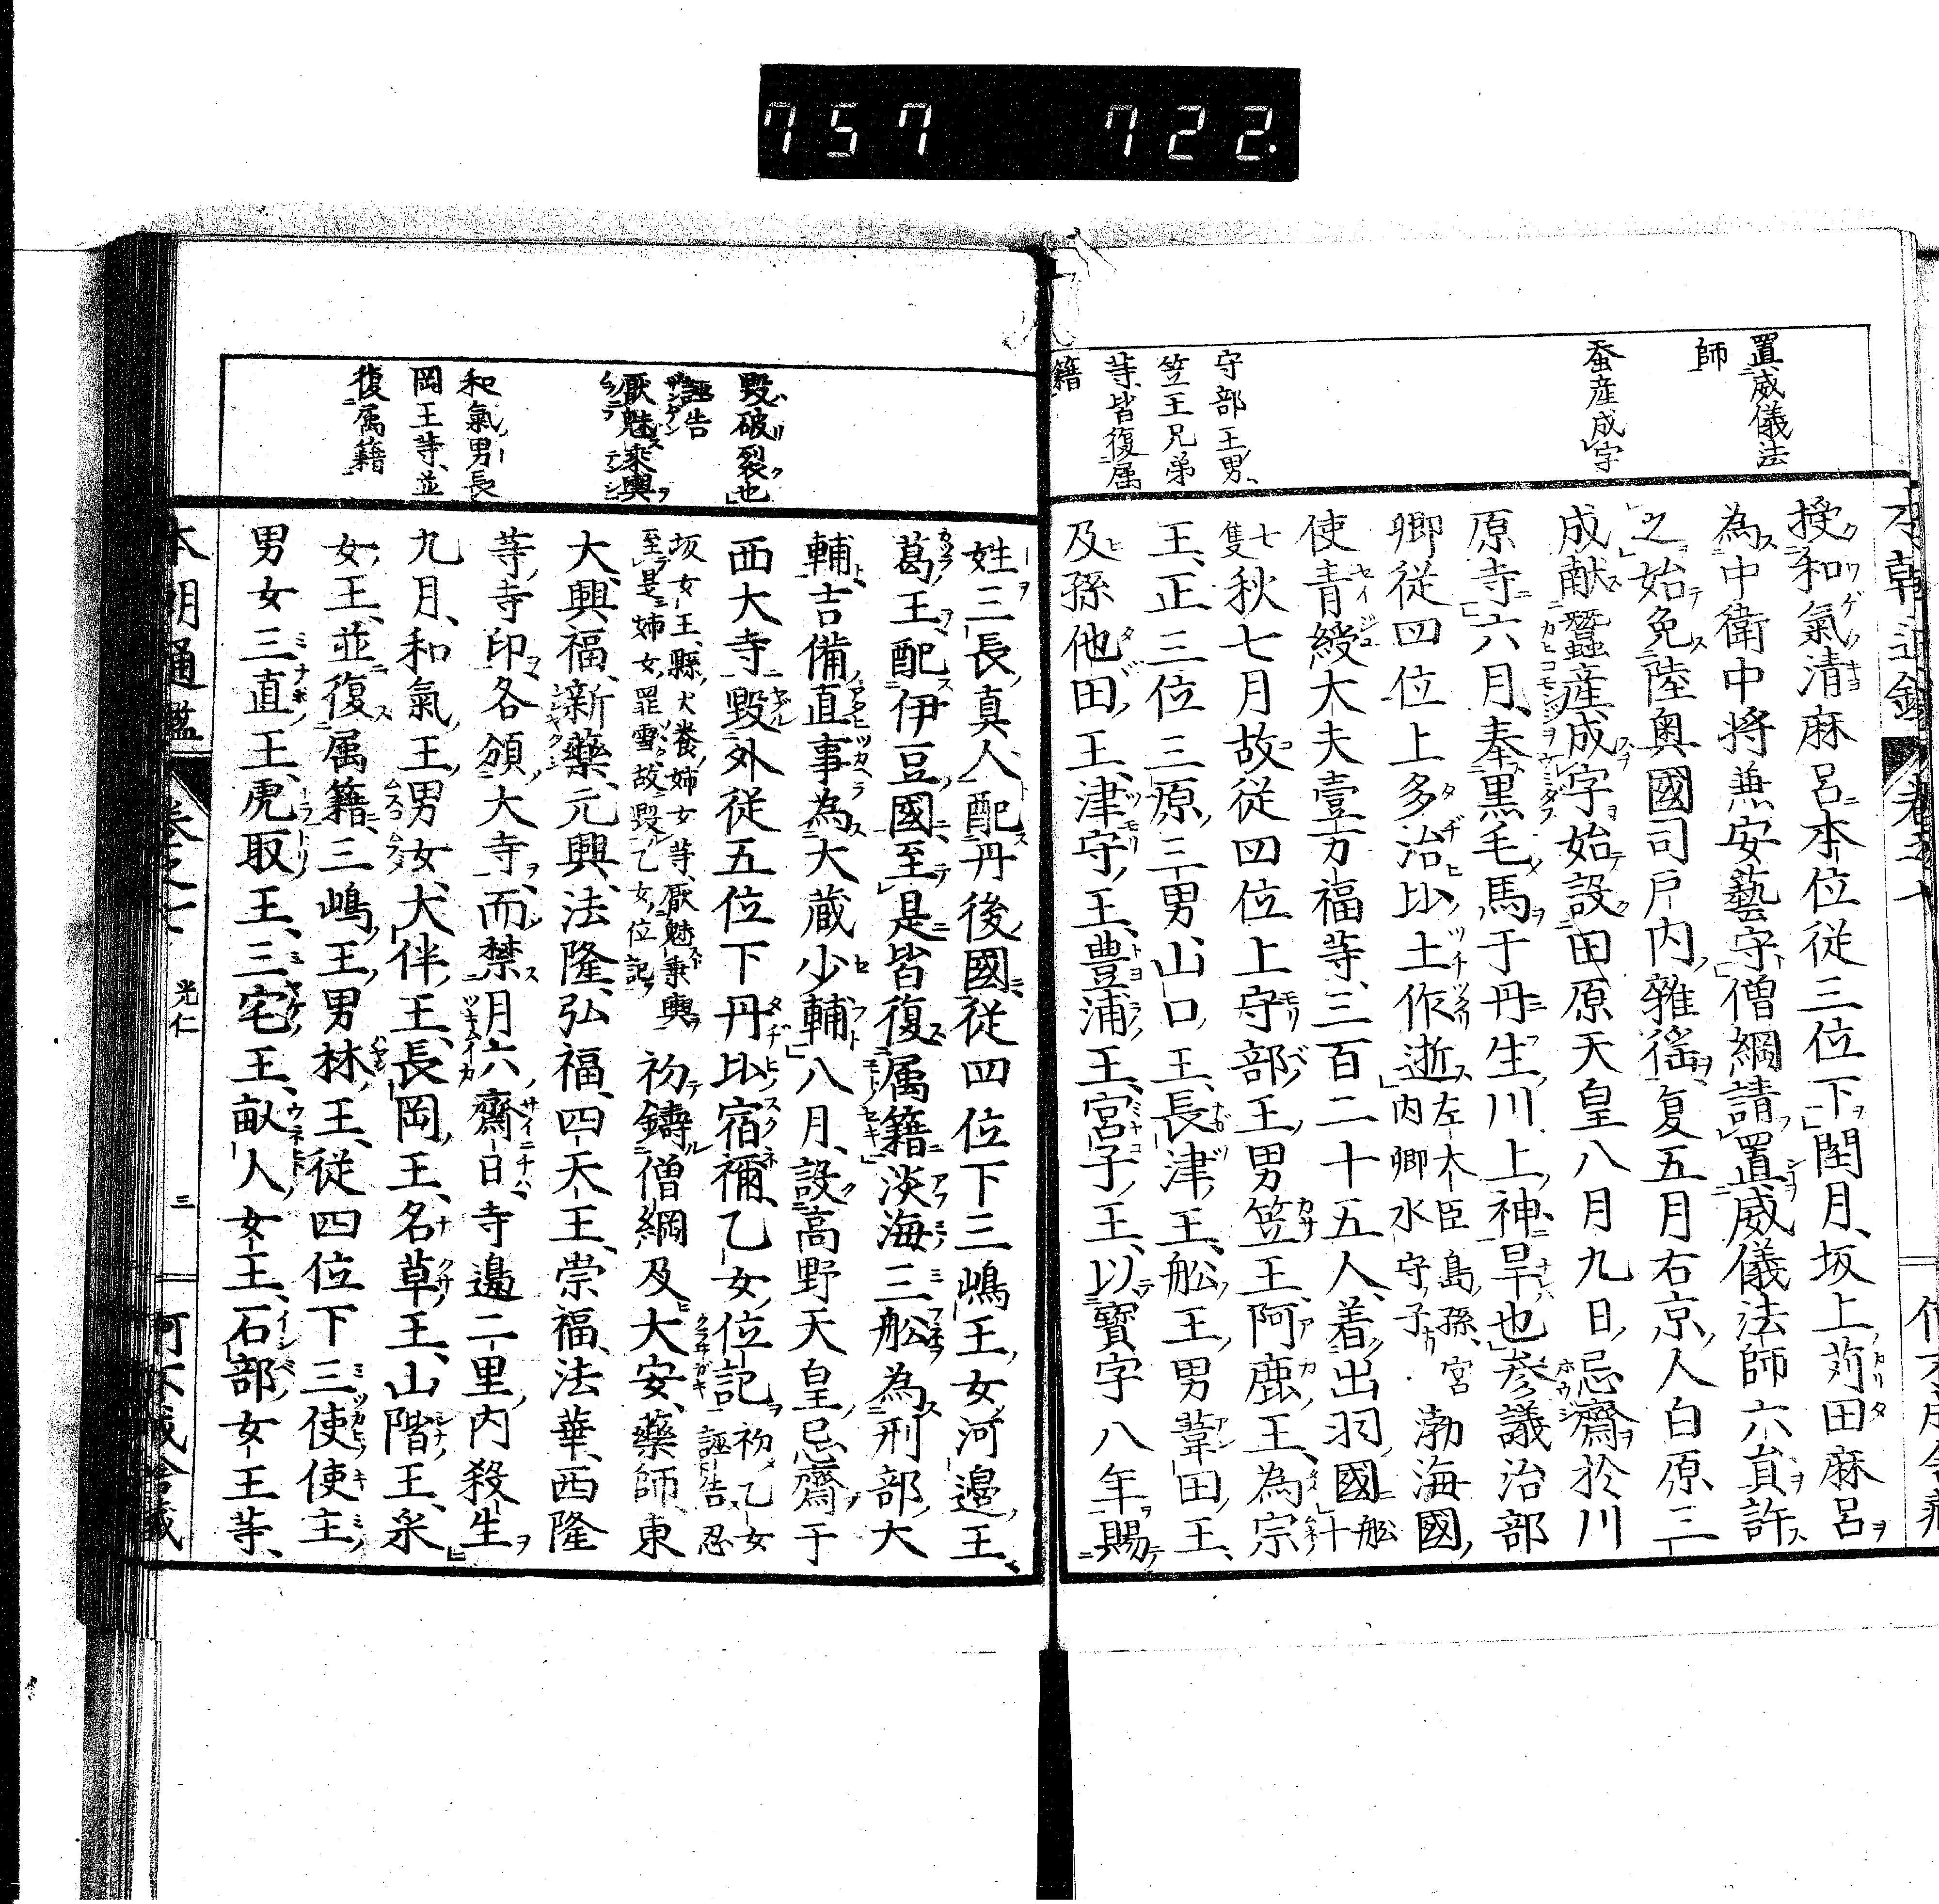 757 722.
置威儀法
師
蚕産成字
守部王男
笠王兄弟
等皆復属
籍
授和氣清麻呂本位從三位下閏月坂上苅田麻呂
為中衛中将兼安藝守僧綱請置威儀法師六貟許
之始免陸奥國司戸内雜徭夏五月右京人白原三
成献蠶産成字始設田原天皇八月九日忌齋於川
原寺六月奉黒毛馬于丹生川上神旱也参議治部
卿從四位上多治比土作逝左大臣島孫宮
内卿水守子渤海國
使青綬大夫壹万福等三百二十五人着出羽國舩十
七隻秋七月故從四位上守部王男笠王阿鹿王為宗
王正三位三原三男山口王長津王舩王男葦田王
及孫他田王津守王豊浦王宮子王以寶字八年賜
毀破裂也
誣告
厭魅乘輿
和氣男長
岡王等並
復属籍
姓三長真人配丹後國從四位下三嶋王女河邉王
葛王配伊豆國至是皆復属籍淡海三舩為刑部大
輔吉備直事為大蔵少輔八月設高野天皇忌齋于
西大寺毀外從五位下丹比宿禰乙女位記初乙女
誣告忍
坂女王縣犬養姉女等厭魅乗輿
至是姉女罪雪故毀乙女位記初鑄僧綱及大安藥師東
大興福新藥元興法隆弘福四天王崇福法華西隆
等寺印各頒大寺而禁月六齋日寺邉二里内殺生
九月和氣王男女大伴王長岡王名草王山階王采
女王並復属籍三嶋王男林王從四位下三使使主
男女三直王虎取王三宅王畝人女王石部女王等
本朝通鑑 卷之 光仁 三